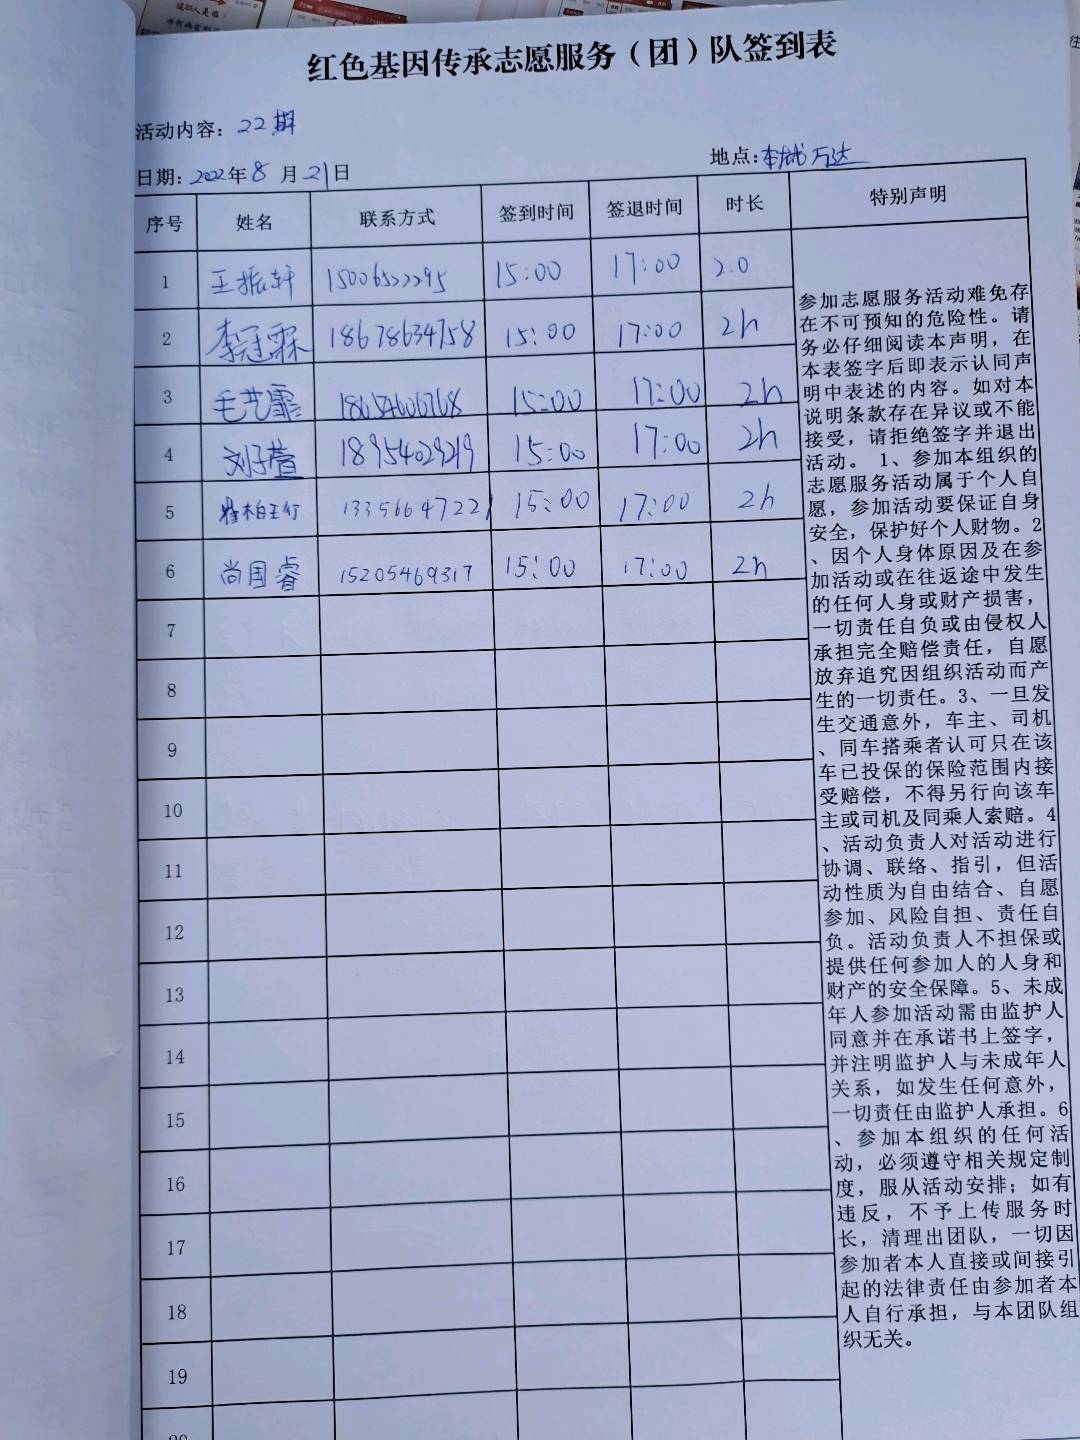 红色基因传承志愿服务（团）队签到表
活动内容：22期
日期：2022年8月21日 地点：万达
序号 姓名 联系方式 签到时间 签退时间 时长 特别声明
1 王振轩 15006522295 15:00 17:00 2.0
2 李冠霖 18678634758 15:00 17:00 2h
3 毛艺霏 18654606768 15:00 17:00 2h
4 刘子萱 18954029219 15:00 17:00 2h
5 13356647221 15:00 17:00 2h
6 尚国睿 15205469317 15:00 17:00 2h
7
8
9
10
11
12
13
14
15
16
17
18
19
20
参加志愿服务活动难免存
在不可预知的危险性。请
务必仔细阅读本声明，在
本表签字后即表示认同声
明中表述的内容。如对本
说明条款存在异议或不能
接受，请拒绝签字并退出
活动。 1、参加本组织的
志愿服务活动属于个人自
愿，参加活动要保证自身
安全，保护好个人财物。2
、因个人身体原因及在参
加活动或在往返途中发生
的任何人身或财产损害，
一切责任自负或由侵权人
承担完全赔偿责任，自愿
放弃追究因组织活动而产
生的一切责任。3、一旦发
生交通意外，车主、司机
、同车搭乘者认可只在该
车已投保的保险范围内接
受赔偿，不得另行向该车
主或司机及同乘人索赔。4
、活动负责人对活动进行
协调、联络、指引，但活
动性质为自由结合、自愿
参加、风险自担、责任自
负。活动负责人不担保或
提供任何参加人的人身和
财产的安全保障。5、未成
年人参加活动需由监护人
同意并在承诺书上签字，
并注明监护人与未成年人
关系，如发生任何意外，
一切责任由监护人承担。6
、参加本组织的任何活
动，必须遵守相关规定制
度，服从活动安排；如有
违反，不予上传服务时
长，清理出团队，一切因
参加者本人直接或间接引
起的法律责任由参加者本
人自行承担，与本团队组
织无关。